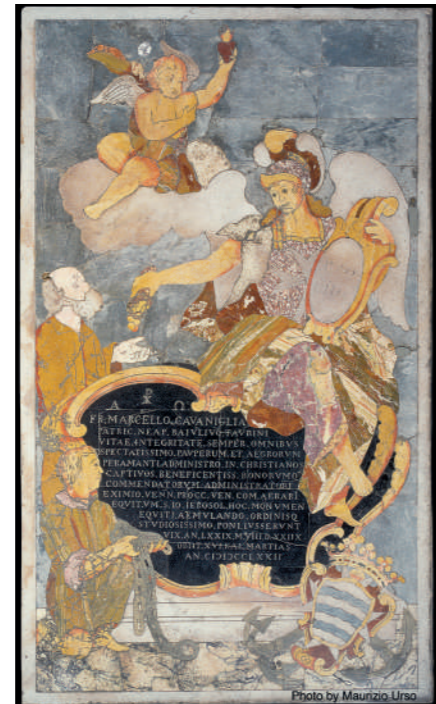 A Ω
FR. MARCELLO. CAVANIGLIA
PATRIC. NEAP. BAJVLIVO. TAVRINI
VITAE. INTEGRITATE. SEMPER. OMNIBVS
SPECTATISSIMO. PAVPERUM. ET. AEGRORUM
PERAMANTI. ADMINISTRO. IN. CHRISTIANOS
CAPTIVOS. BENEFICENTISS. BONORUMQ
COMMENDATORVM. ADMINISTRATORI
EXIMIO. VENN. PROCC. VEN. COM. AERARI
EQVITUM. S. IO. IEROSOL. HOC. MONUMEN
EQVITI. AEMVLANDO. ORDINISQ
STVDIOSISSIMO. PONI. IVSSERVNT
VIX. AN. LXXIX. M. VIII. D. XXIIX
OBIIT. MARTIAS
Photo by Maurizio Urso